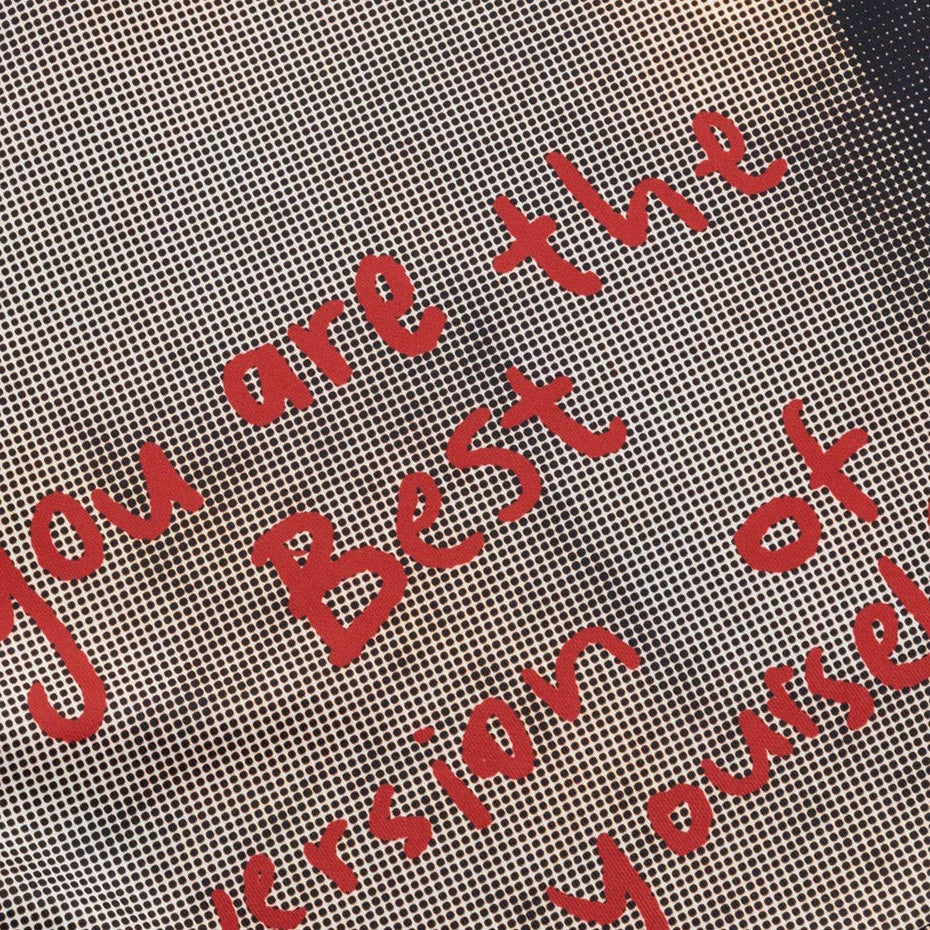 you are the
Best
version of
yourself